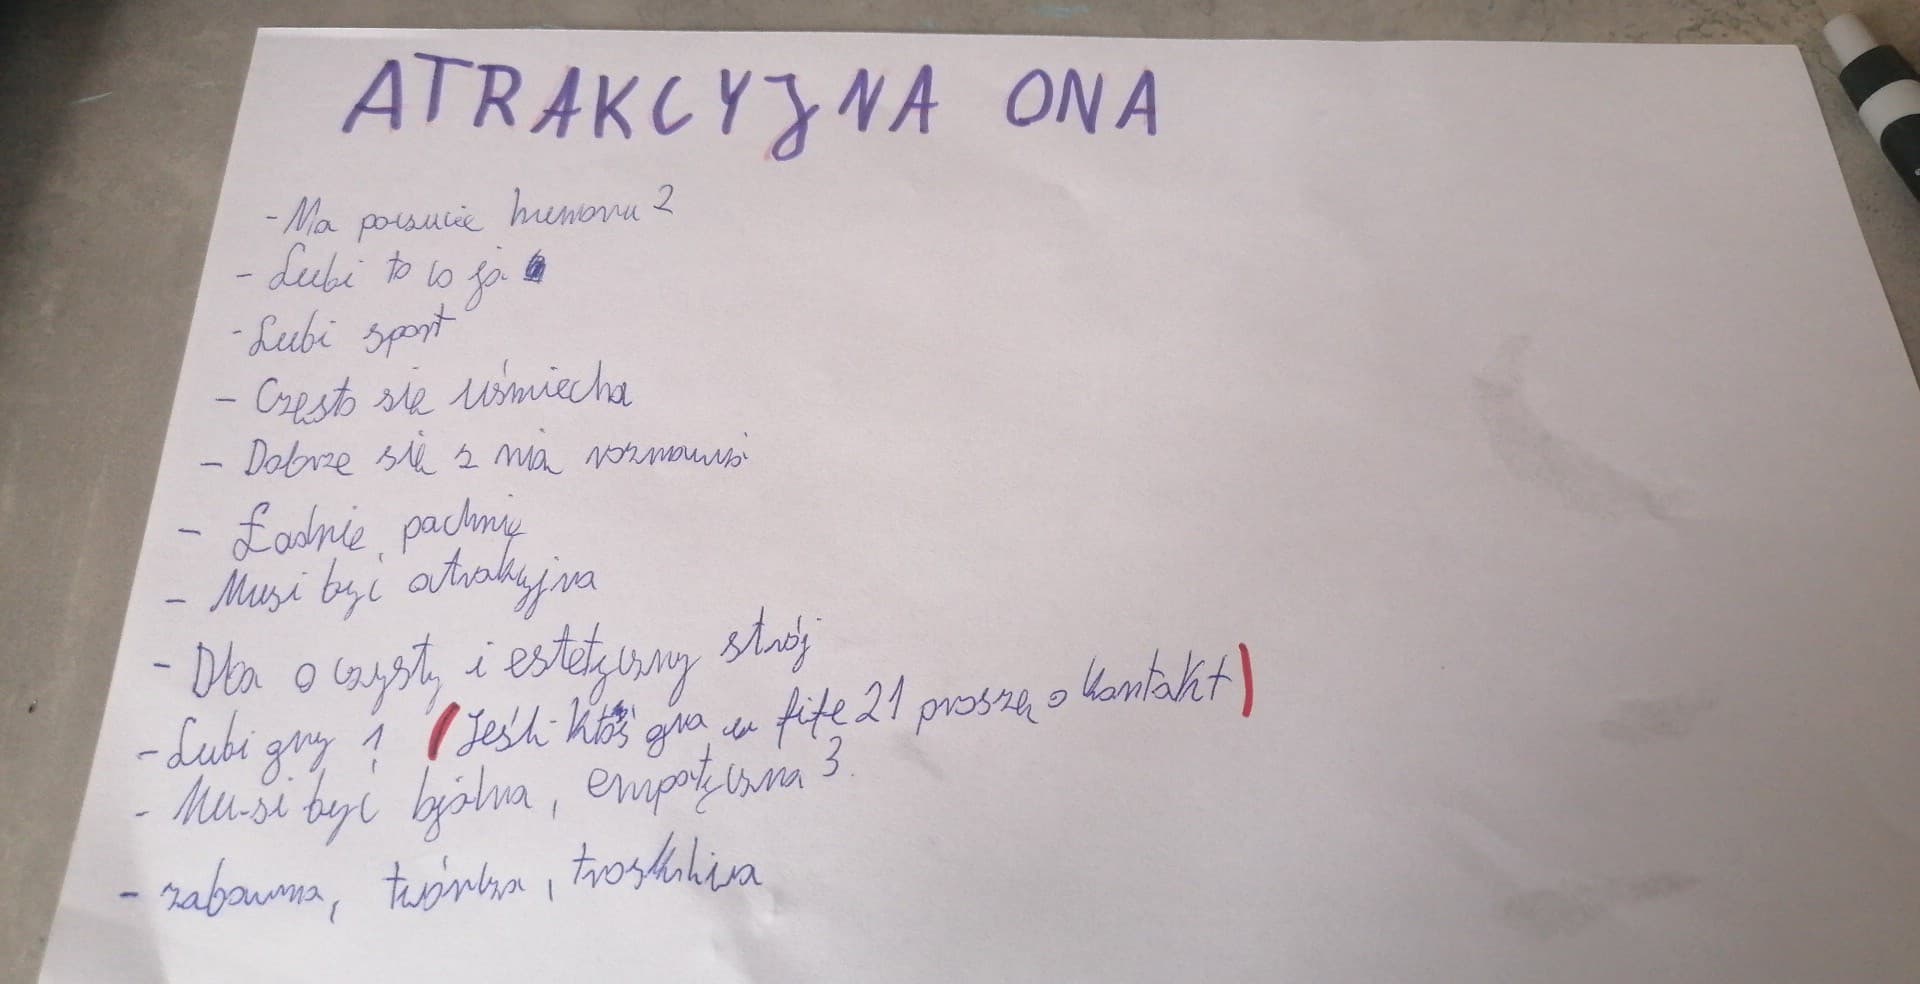 ATRAKCYJNA ONA
- Ma poczucie humoru 2
- Lubi to co ja
- Lubi sport
- Często się uśmiecha
- Dobrze się z nią rozmawia
- Ładnie pachnie
- Musi być atrakcyjna
- Dba o czysty i estetyczny strój
- Lubi gry 1 (Jeśli ktoś gra w fife 21 proszę o kontakt)
- Musi być lojalna, empatyczna 3
- zabawna, twórcza, troskliwa